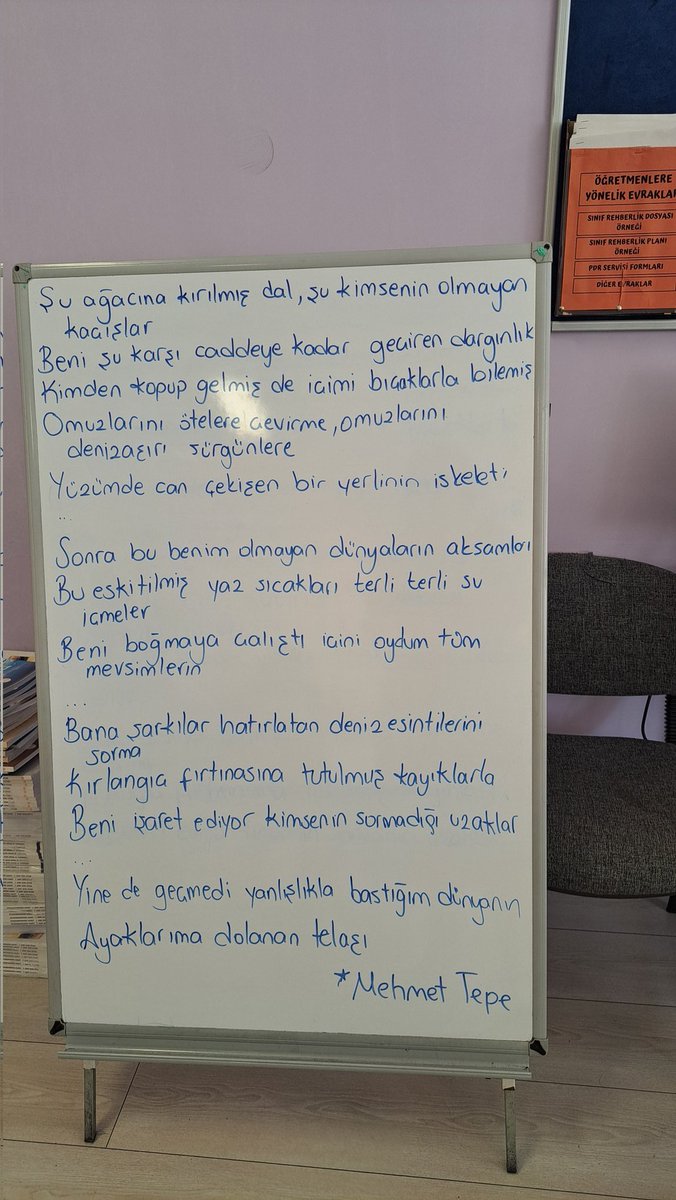 Şu ağacına kırılmış dal, şu kimsenin olmayan
kaçışlar
Beni şu karşı caddeye kadar geçiren dargınlık
Kimden kopup gelmiş de içimi bıçaklarla bilemiş
Omuzlarını ötelere çevirme, omuzlarını
denizaşırı sürgünlere
Yüzümde can çekişen bir yerlinin iskeleti
...
Sonra bu benim olmayan dünyaların akşamları
Bu eskitilmiş yaz sıcakları terli terli su
içmeler
Beni boğmaya çalıştı içini oydum tüm
mevsimlerin
...
Bana şarkılar hatırlatan deniz esintilerini
sorma
Kırlangıç fırtınasına tutulmuş kayıklarla
Beni işaret ediyor kimsenin sormadığı uzaklar
...
Yine de geçmedi yanlışlıkla bastığım dünyanın
Ayaklarıma dolanan telaşı
*Mehmet Tepe
ÖĞRETMENLERE
YÖNELİK EVRAKLAR
SINIF REHBERLİK DOSYASI
ÖRNEĞİ
SINIF REHBERLİK PLANI
ÖRNEĞİ
PDR SERVİSİ FORMLARI
DİĞER EVRAKLAR